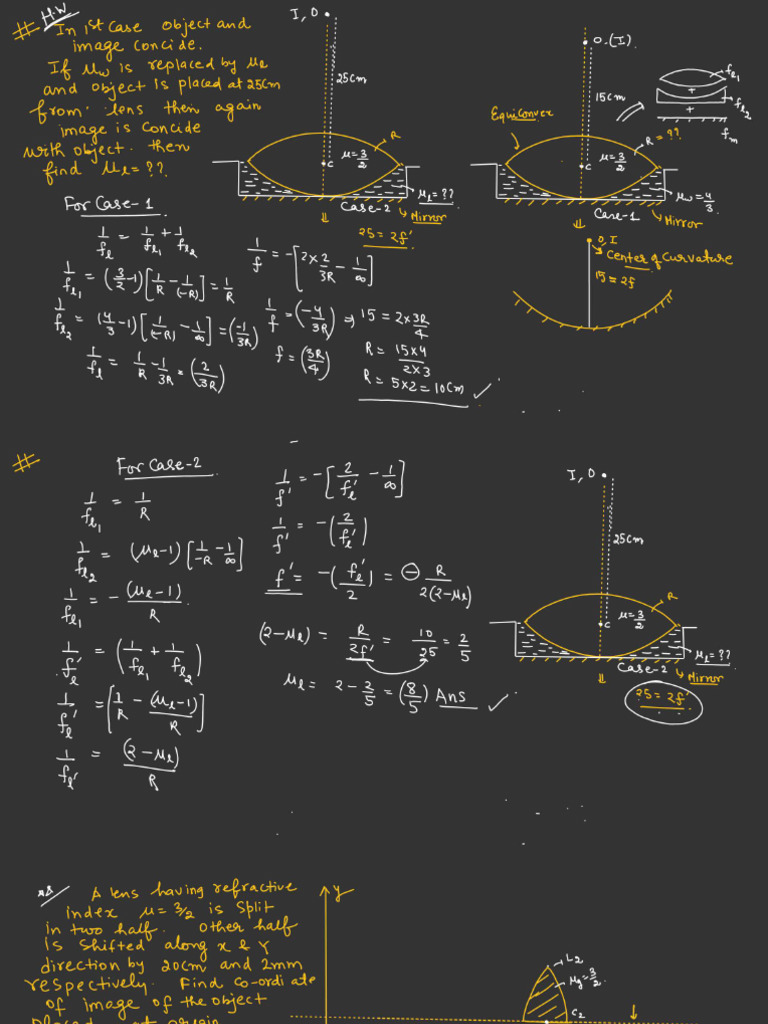 # H.W
In 1st case object and
image concide.
If μw is replaced by μℓ
and object is placed at 25cm
from lens then again
image is concide
with object. then
find μℓ = ??.
I, O
25cm
R
μ=3/2
C
μℓ=??
Case-2 → Mirror
⇓
25 = 2f'
O.(I).
15cm
Equiconvex
R = ??
μ=3/2
C
μw=4/3
Case-1 → Mirror
⇓
fℓ1
+
fℓ2
+
fm
O, I
Center of Curvature
15 = 2f
For Case-1
1/fℓ = 1/fℓ1 + 1/fℓ2
1/fℓ1 = (3/2 -1)[1/R - 1/(-R)] = 1/R
1/fℓ2 = (4/3 -1)[1/(-R) - 1/∞] = (-1/3R)
1/fℓ = 1/R - 1/3R = (2/3R)
1/f = -[2×2/3R - 1/∞]
1/f = (-4/3R) ⇒ 15 = 2×3R/4
f = (3R/4)
R = 15×4/2×3
R = 5×2 = 10cm ✓
#
For Case-2
1/fℓ1 = 1/R
1/fℓ2 = (μℓ-1)[1/-R - 1/∞]
1/fℓ1 = -(μℓ-1)/R.
1/fℓ' = (1/fℓ1 + 1/fℓ2)
1/fℓ' = [1/R - (μℓ-1)/R]
1/fℓ' = (2-μℓ)/R
1/f' = -[2/fℓ' - 1/∞]
1/f' = -(2/fℓ')
f' = -(fℓ'/2) = ⊖ R/2(2-μℓ)
(2-μℓ) = R/2f' = 10/25 = 2/5
μℓ = 2 - 2/5 = (8/5) Ans ✓
I, O
25cm
R
μ=3/2
C
μℓ=??
Case-2 → Mirror
⇓
25 = 2f'
A lens having refractive
index μ = 3/2 is split
in two half. other half
is shifted along x & Y
direction by 20cm and 2mm
respectively. Find co-ordiate
of image of the object
placed at origin
y
L2
μg=3/2.
C2